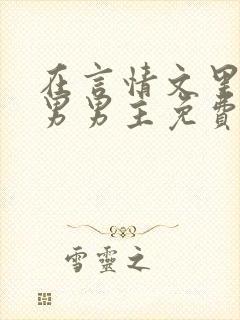 在言情文里
男男主免費
雪靈之